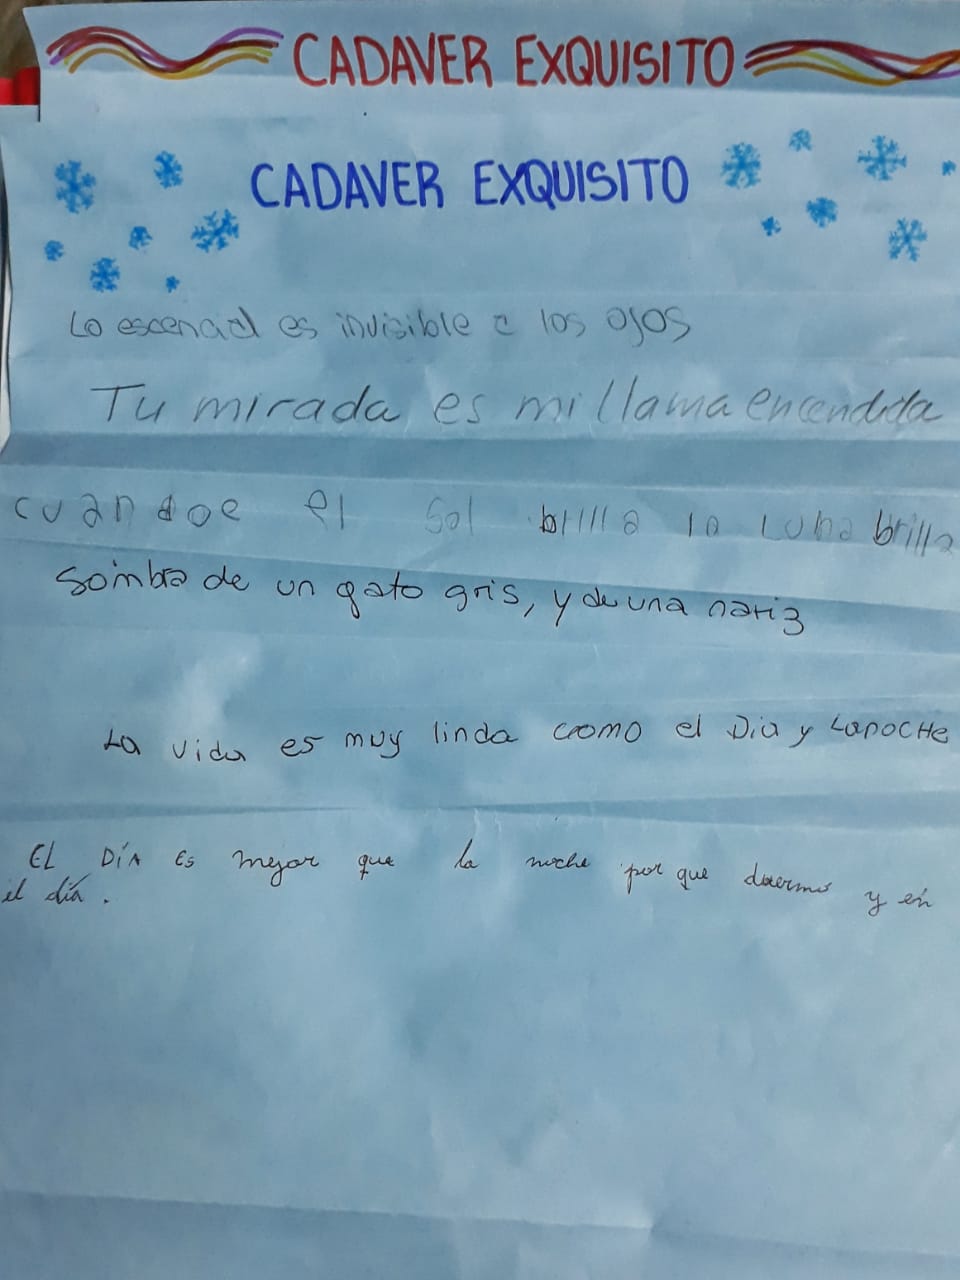 CADAVER EXQUISITO
CADAVER EXQUISITO
Lo escencial es invisible a los ojos
Tu mirada es mi llama encendida
cuandoe el sol brilla la luna brilla
Sombra de un gato gris, y de una nariz
La vida es muy linda como el Dia y LanocHe
EL DÍA Es mejor que la noche por que duermo y en
el día.